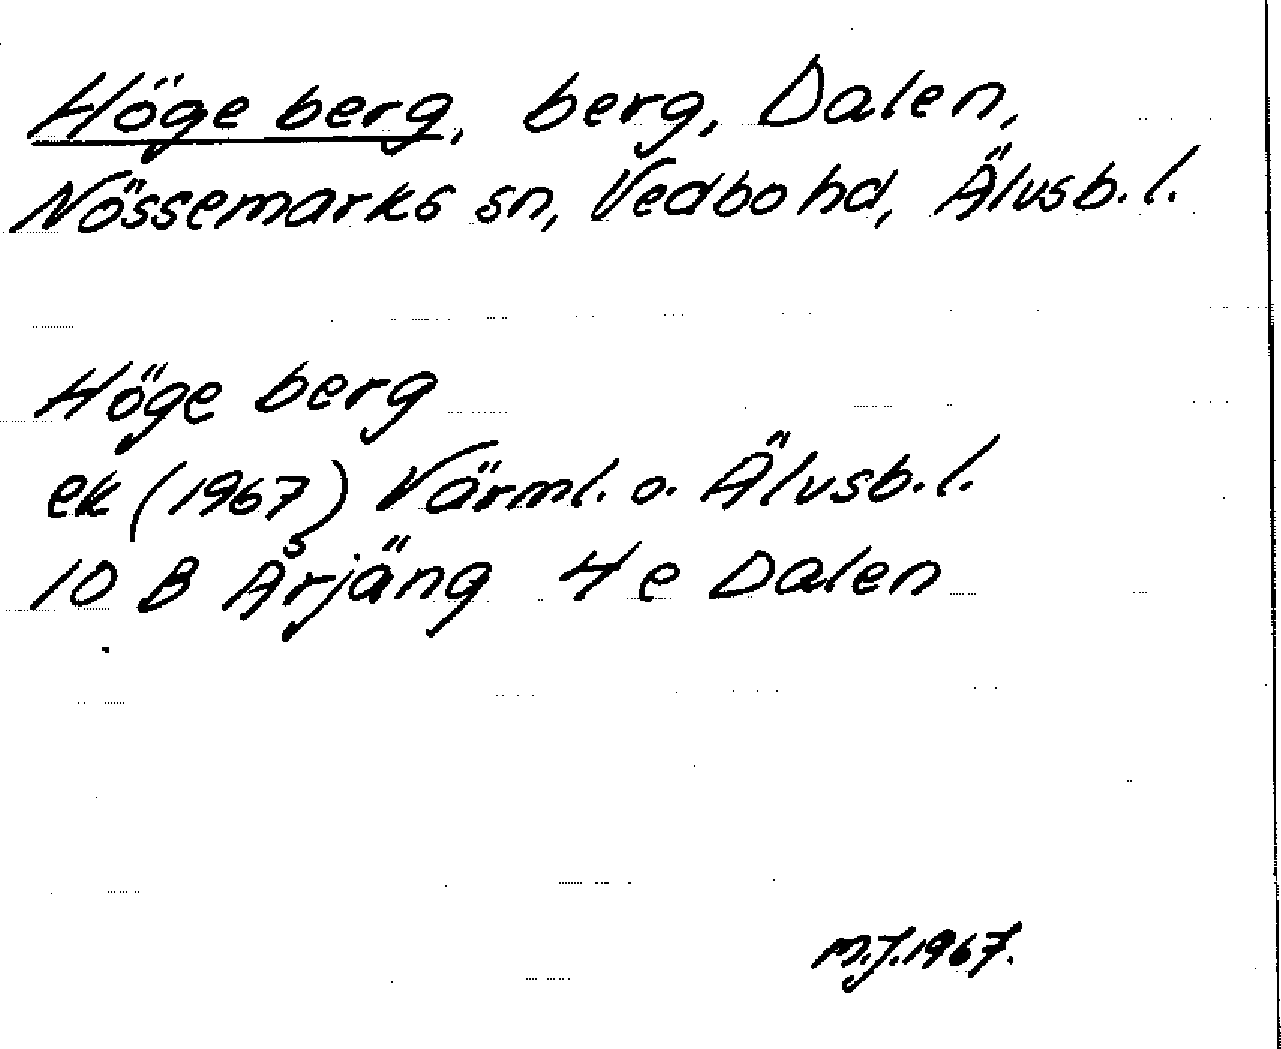 Höge berg, berg, Dalen,
Nössemarks sn, Vedbo hd, Älvsb. l.
Höge berg
ek (1967) Värml. o. Älvsb. l.
10 B Årjäng 4 e Dalen
M.J. 1967.